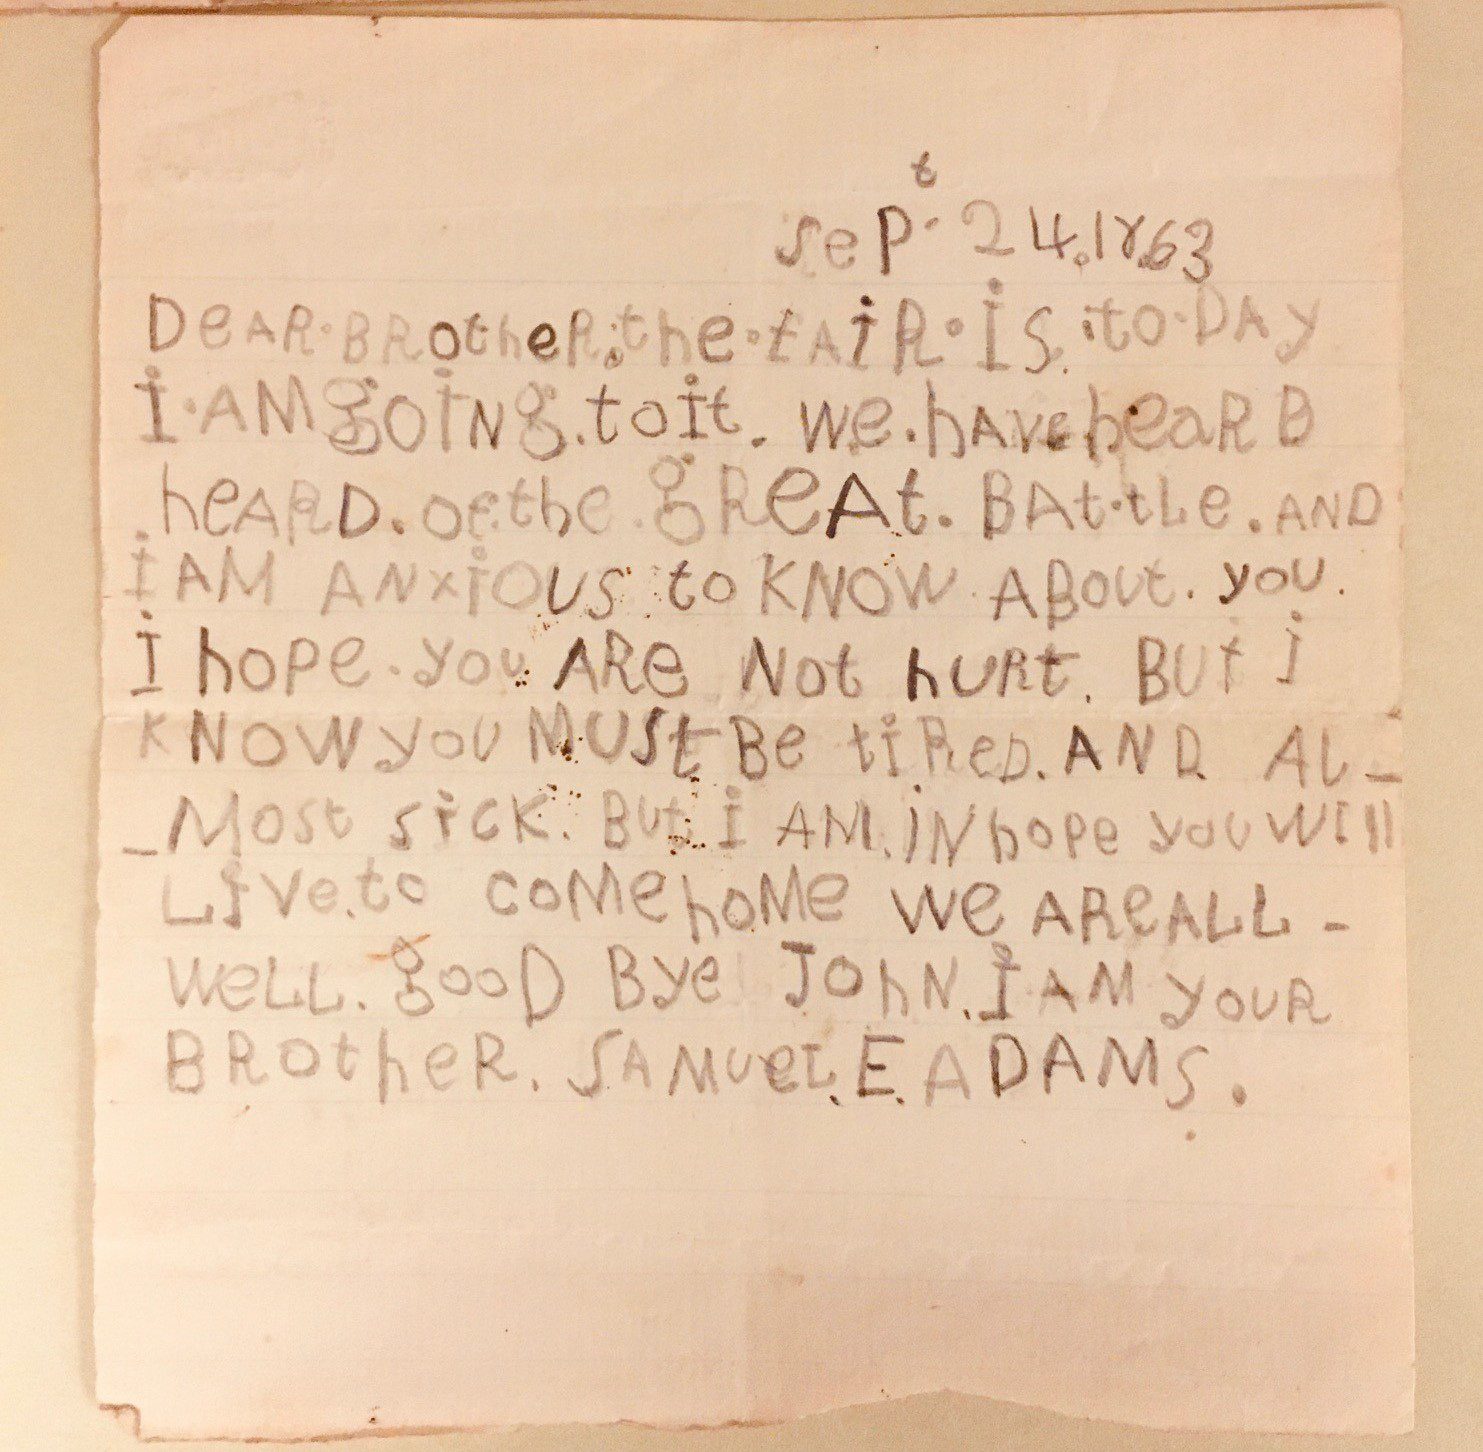 sePt. 24.1863
DeAR. BRotheR. the. fAiR. is. to. DAy
i. AM goiNg. to it. we. hAve heaRB
heARD. of the. gReAt. BAttLe. AND
i AM ANxioUS to KNOW ABout. you.
i hope. you ARe Not huRt. BUt i
KNOW you MUSt Be tiReD. AND AL-
-Most sick. But i AM. iN hope you Will
Live. to coMe hoMe we ARe ALL -
weLL. gooD Bye JohN. I AM youR
BRotheR. SAMueL. E. ADAMS.